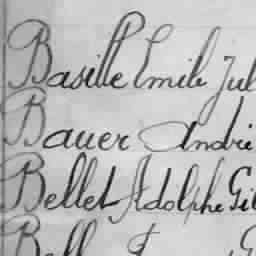 Basille Emile Jul
Bauer André
Bellet Adolphe Gil
Bell